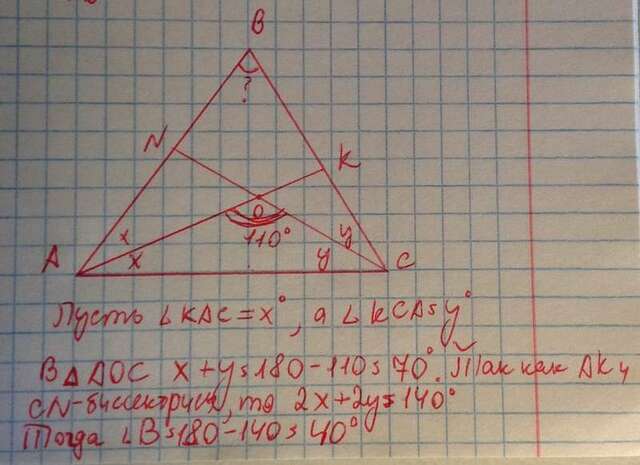 B
?
N
K
O
110°
x
x
y
y
A
C
Пусть ∠KAC = x°, а ∠KCA = y°
В △AOC x + y = 180 - 110 = 70°. Так как AK и
CN - биссектрисы, то 2x + 2y = 140°
Тогда ∠B = 180° - 140 = 40°